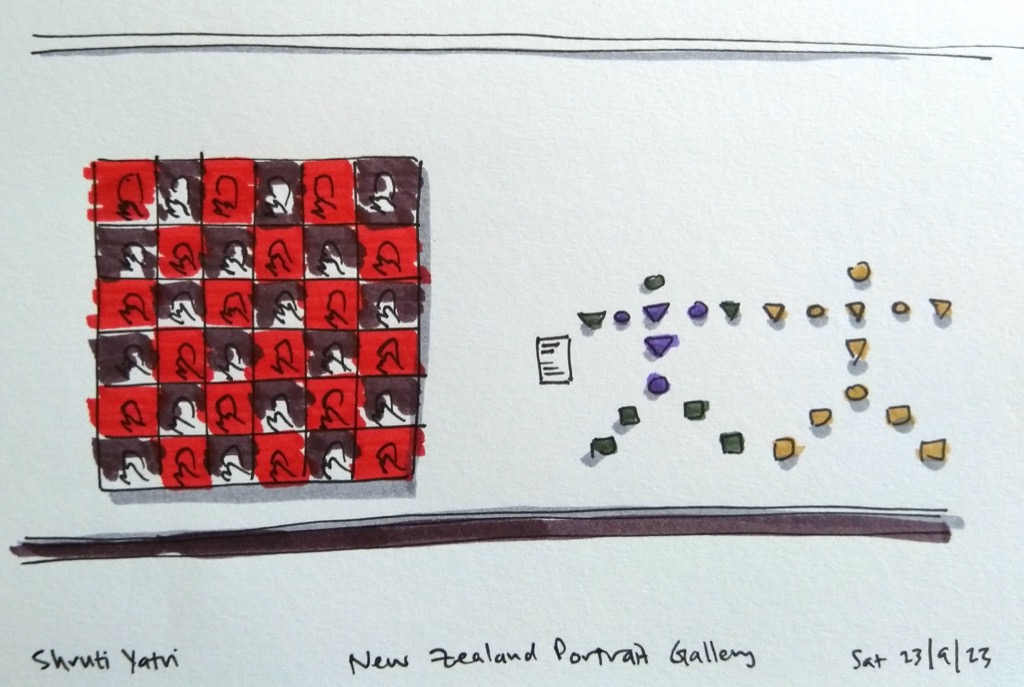 Shruti Yatri New Zealand Portrait Gallery Sat 23/9/23